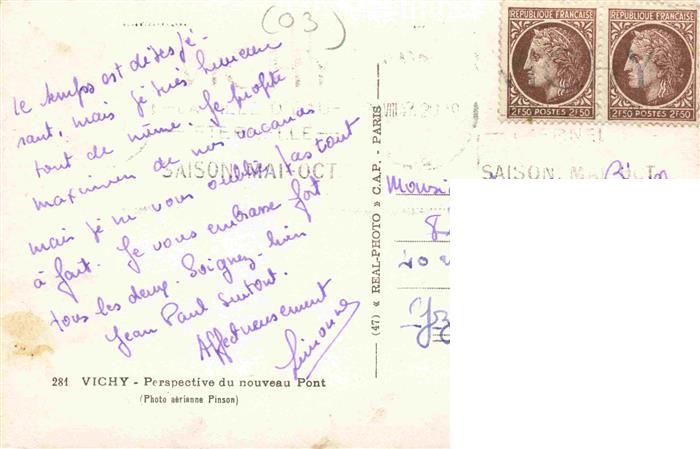 (03)
REPUBLIQUE FRANÇAISE
REPUBLIQUE FRANÇAISE
2F50 POSTES 2F50
2F50 POSTES 2F50
SAISON MAI-OCT
SAISON. MAI-OCT
le temps est désesé-
rant, mais je suis heureuse
tout de même. Je profite
maximum de nos vacances
mais je ne vous oublie pas tout
à fait. Je vous embrasse fort
tous les deux. Soignez-bien
Jean Paul surtout.
Affectueusement
Simonne
281 VICHY - Perspective du nouveau Pont
(Photo aérienne Pinson)
(47) « REAL-PHOTO » C.A.P. - PARIS